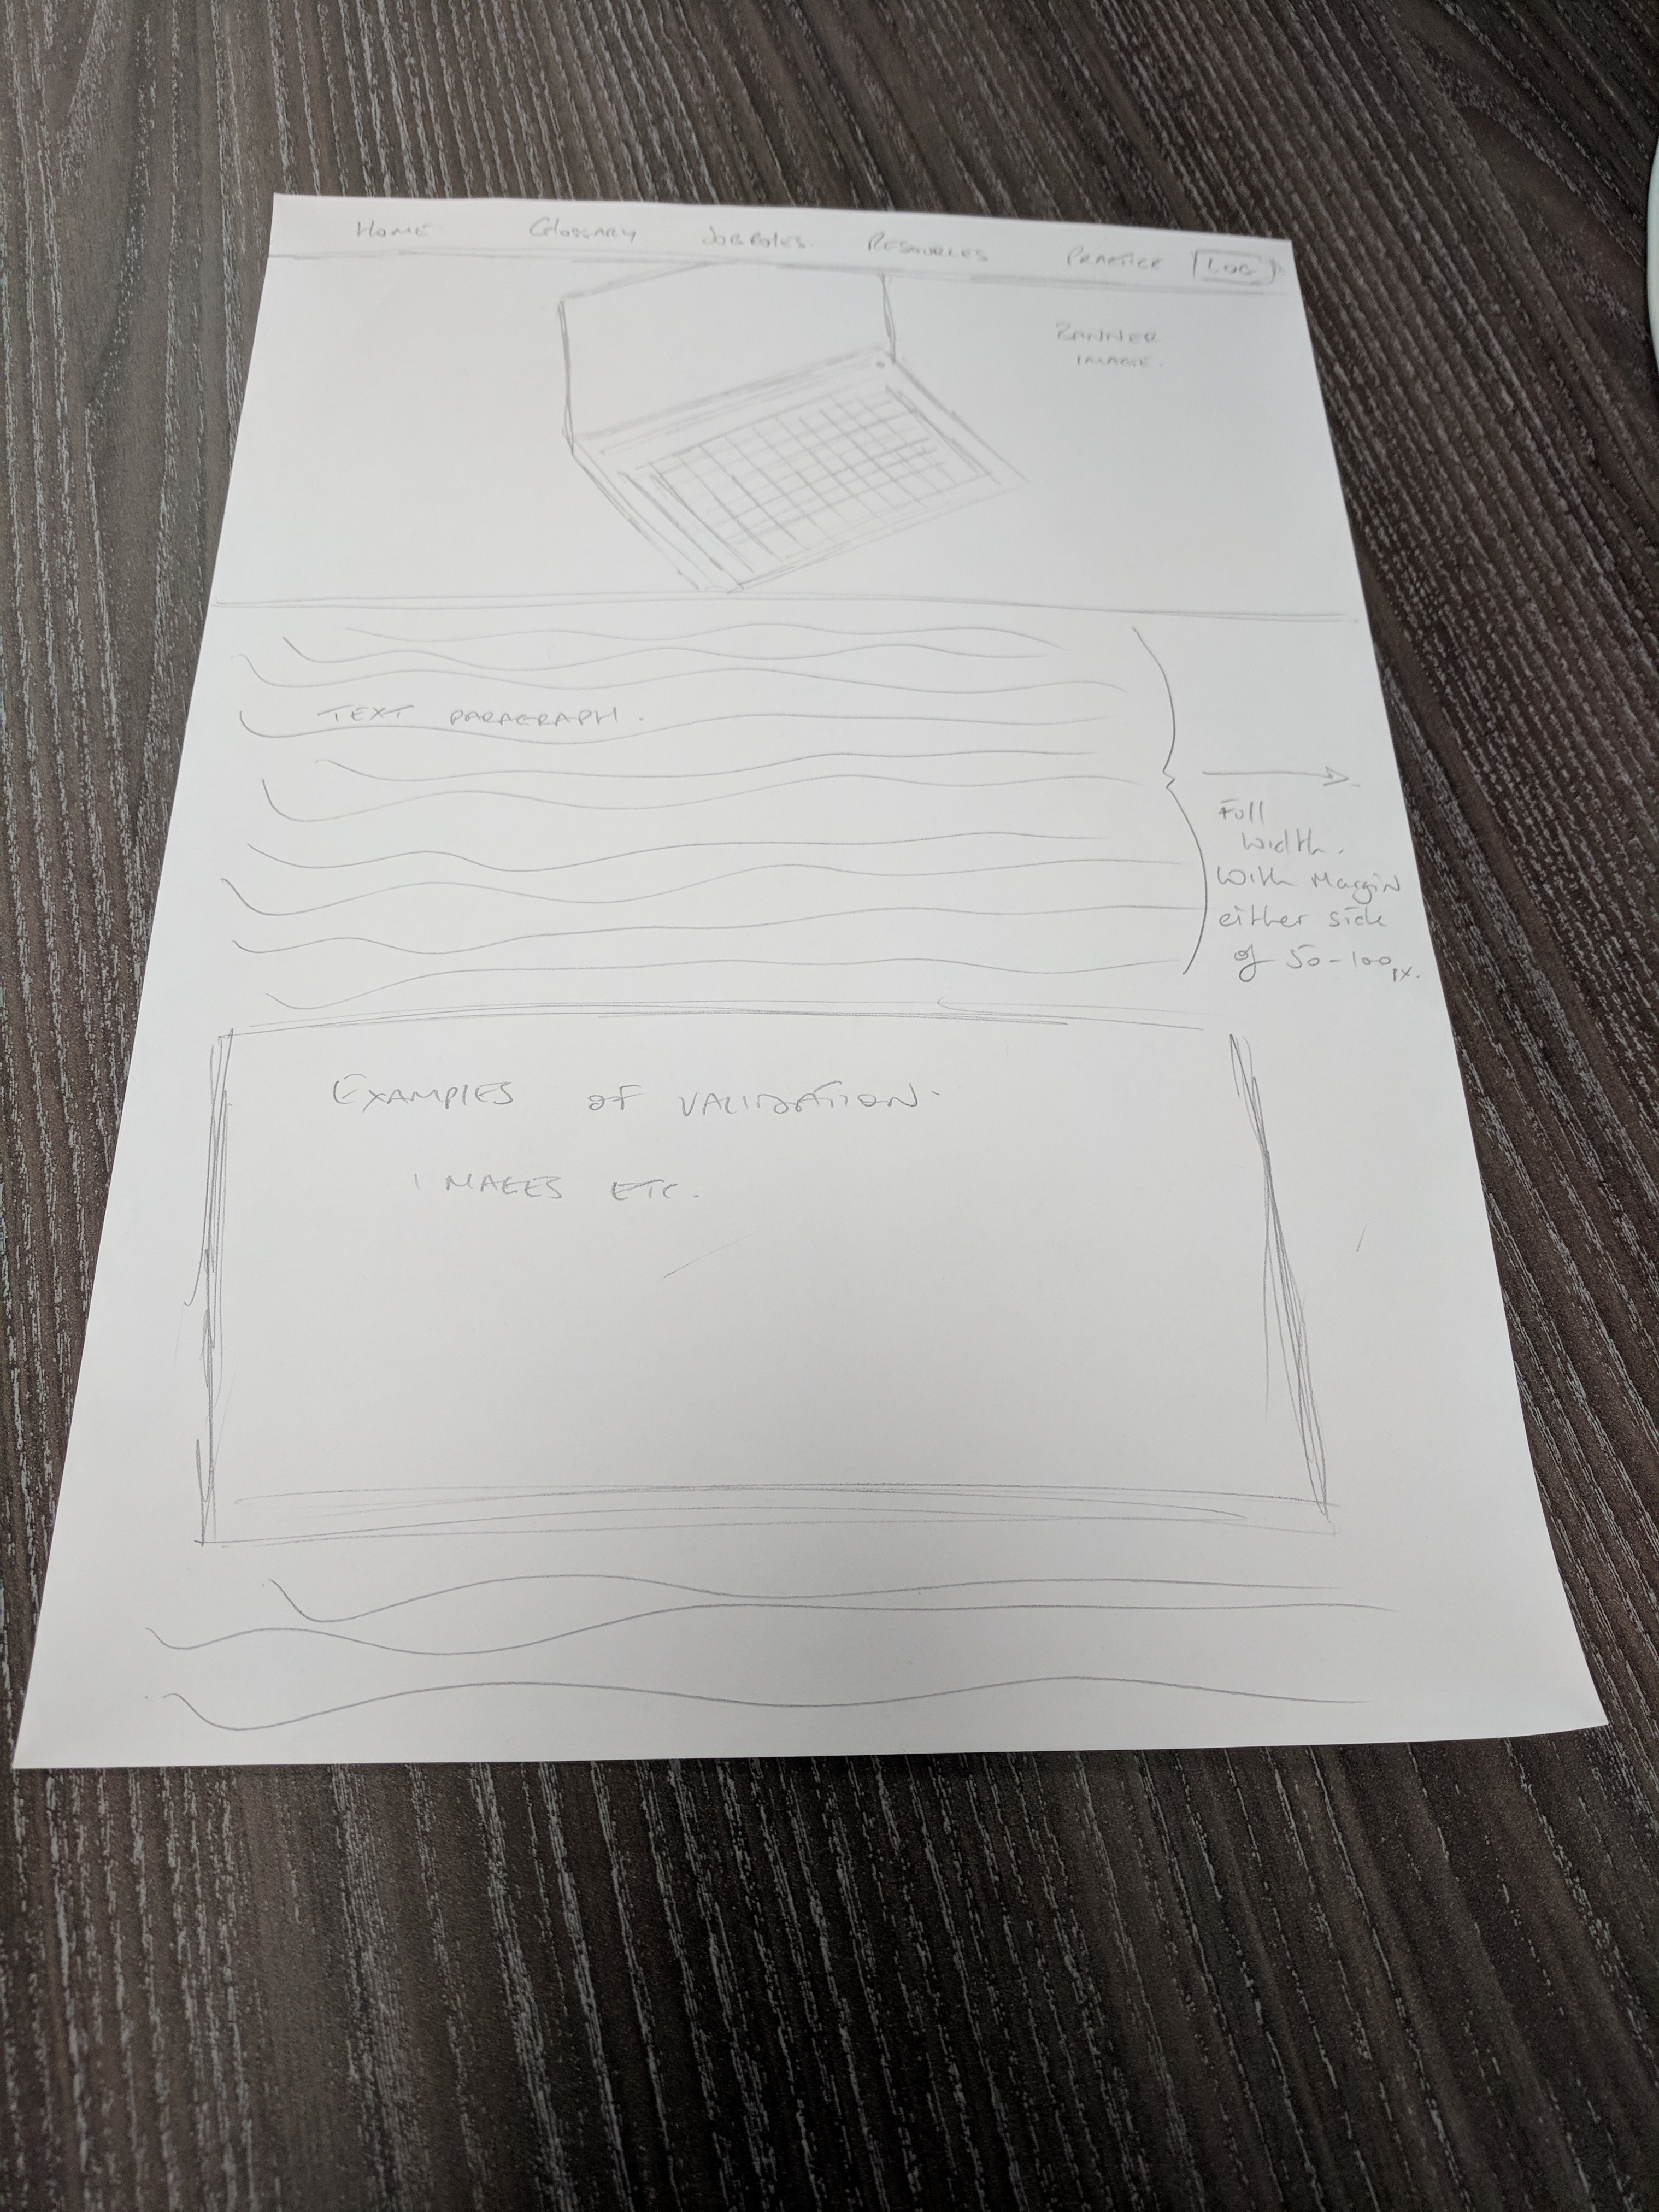 Home Glossary Job Roles. Resources Practice Log
BANNER
IMAGE.
TEXT PARAGRAPH.
Full
width.
with Margin
either side
of 50-100px.
EXAMPLES OF VALIDATION.
IMAGES ETC.